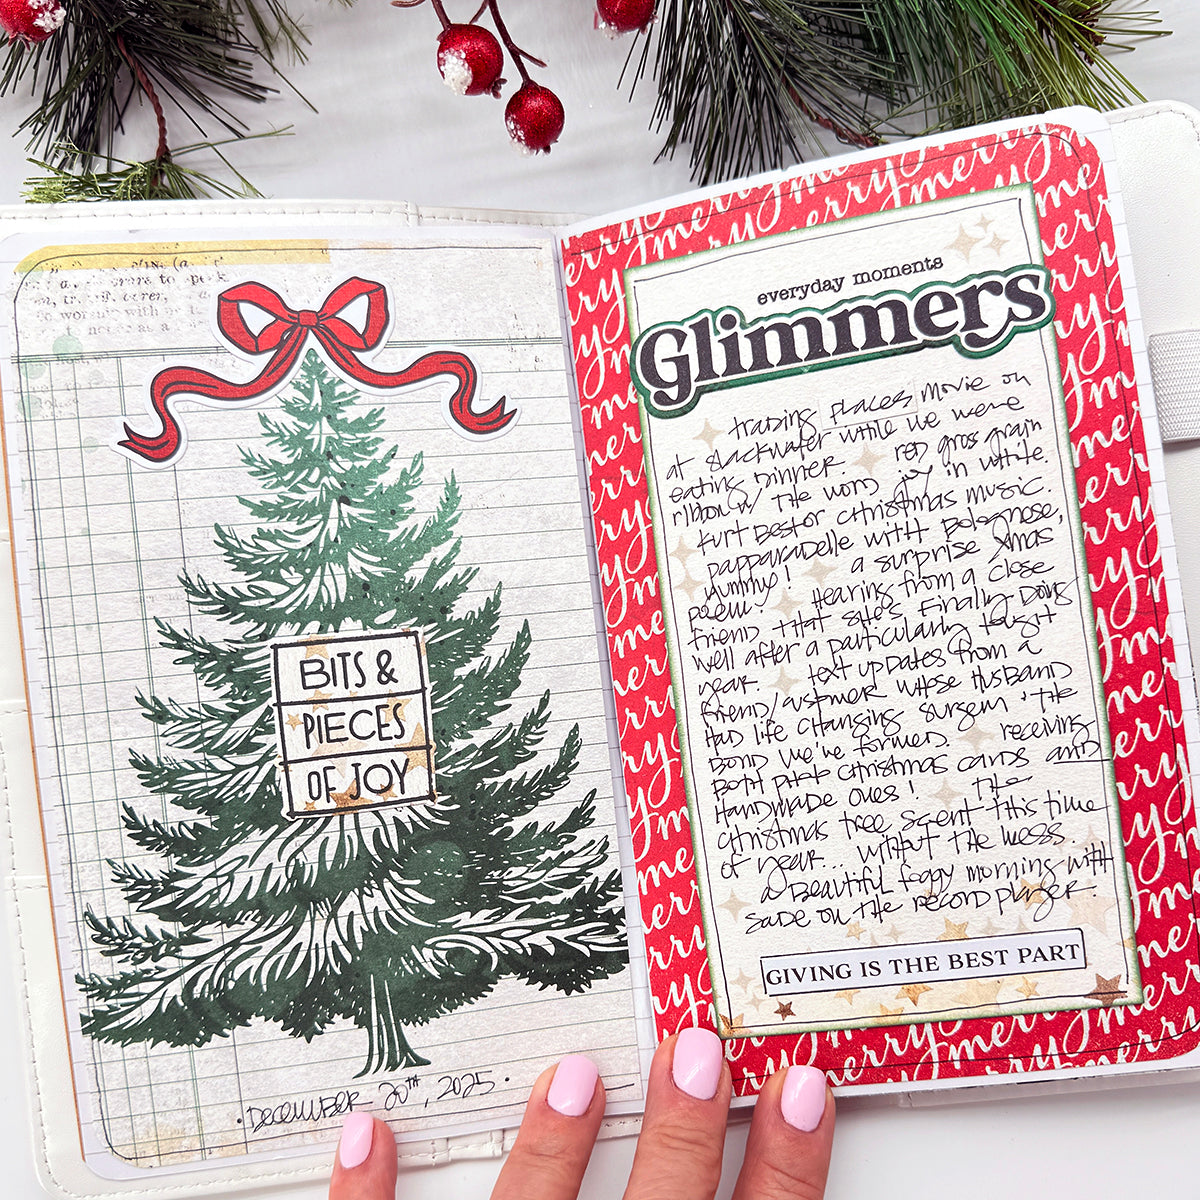 BITS &
PIECES
OF JOY
DECEMBER 20TH, 2025.
everyday moments
Glimmers
trading places movie on
at slackwater while we were
eating dinner. red gros grain
ribbon w/ the word joy in white.
Kurt Bestor christmas music
papparadelle with Bolognese,
yummy! a surprise xmas
poem Hearing from a close
friend that she's finally doing
well after a particularly tough
year. text updates from a
friend/customer whose husband
had life changing surgery the
bond we've formed. receiving
both christmas cards and
handmade ones! The
christmas tree scent this time
of year.. without the mess.
a beautiful foggy morning with
Sade on the record player.
GIVING IS THE BEST PART
merry merry merry